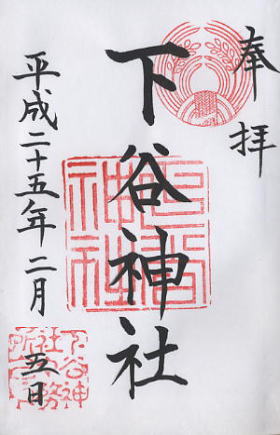 奉拝
下谷神社
平成二十五年二月五日
下谷神社
社務所